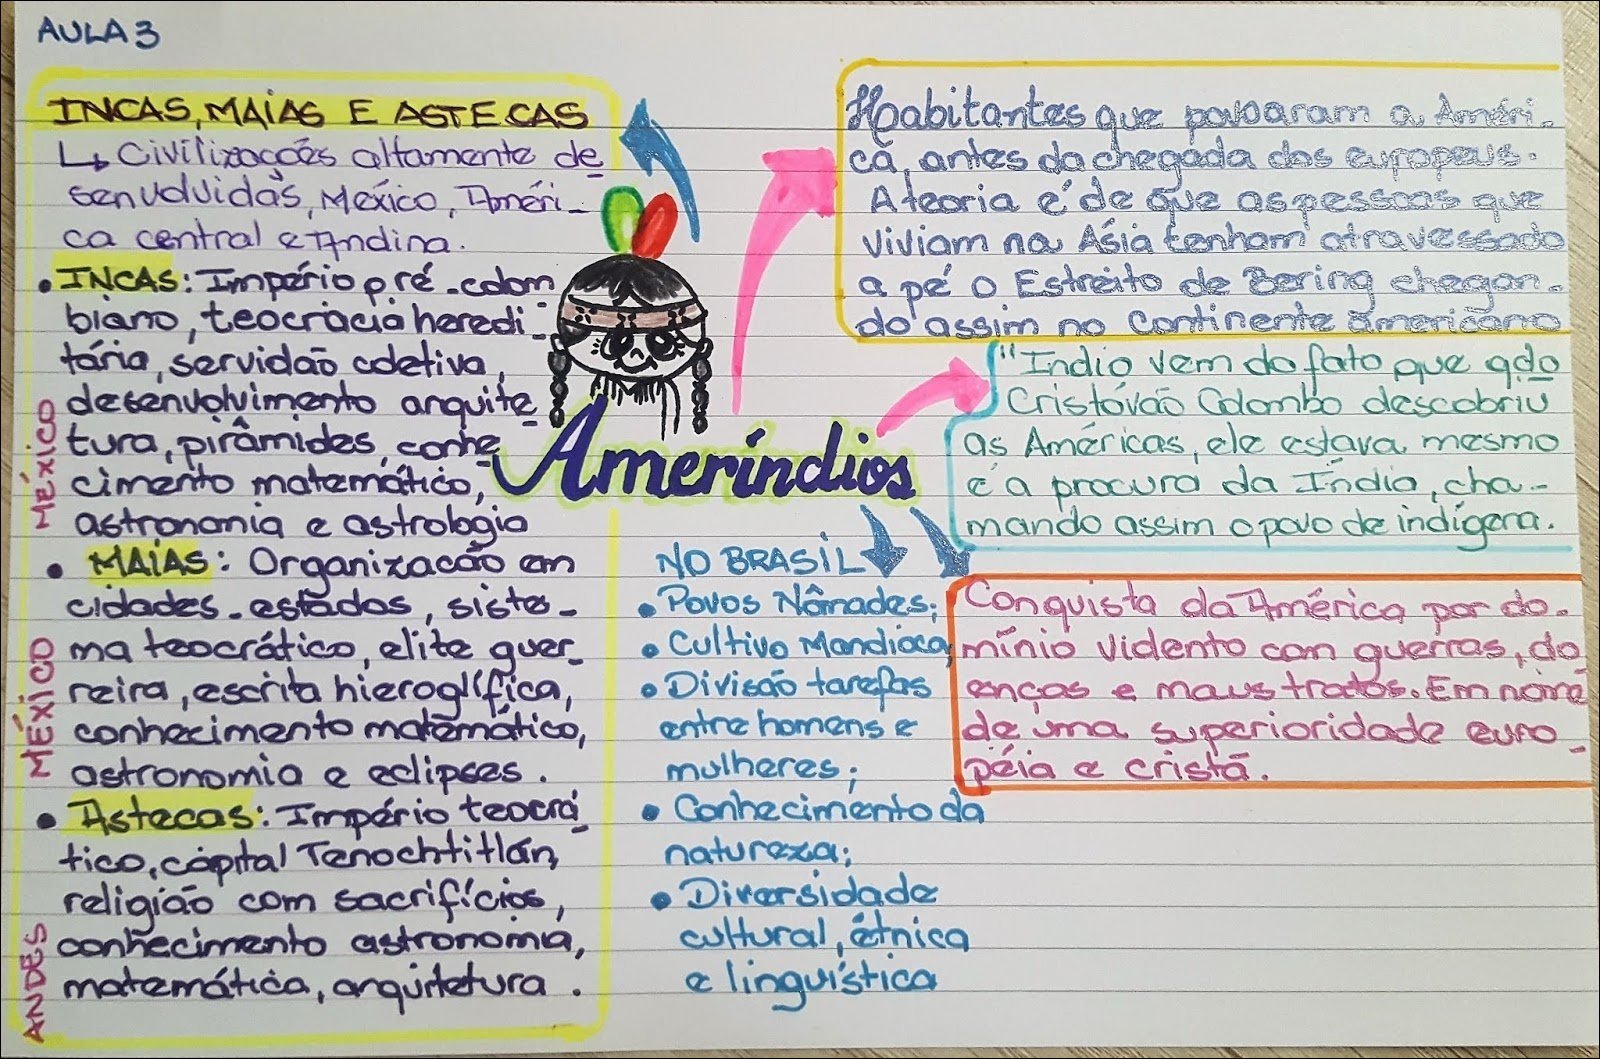 AULA 3
INCAS, MAIAS E ASTECAS
↳ Civilizações altamente de
senvolvidas, México, Améri-
ca central e Andina.
• INCAS: Império pré-colom
biano, teocracia heredi-
tária, servidão coletiva,
desenvolvimento arquite
tura, pirâmides, conhe
cimento matemático,
astronomia e astrologia
México
• MAIAS: Organização em
cidades-estados, siste-
ma teocrático, elite guer-
reira, escrita hieroglífica,
conhecimento matemático,
astronomia e eclipses.
MÉXICO
• Astecas: Império teocrá-
tico, capital Tenochtitlán,
religião com sacrifícios,
conhecimento astronomia,
matemática, arquitetura.
ANDES
Ameríndios
Habitantes que povoaram a Améri-
ca, antes da chegada dos europeus.
A teoria é de que as pessoas que
viviam na Ásia tenham atravessado
a pé o Estreito de Bering chegan-
do assim no continente americano
"Índio vem do fato que qdo
Cristóvão Colombo descobriu
as Américas, ele estava mesmo
é a procura da Índia, cha-
mando assim o povo de indígena.
NO BRASIL
• Povos Nômades;
• Cultivo Mandioca;
• Divisão tarefas
entre homens e
mulheres;
• Conhecimento da
natureza;
• Diversidade
cultural, étnica
e linguística
Conquista da América por do-
mínio violento com guerras, do
enças e maus tratos. Em nome
de uma superioridade euro-
péia e cristã.